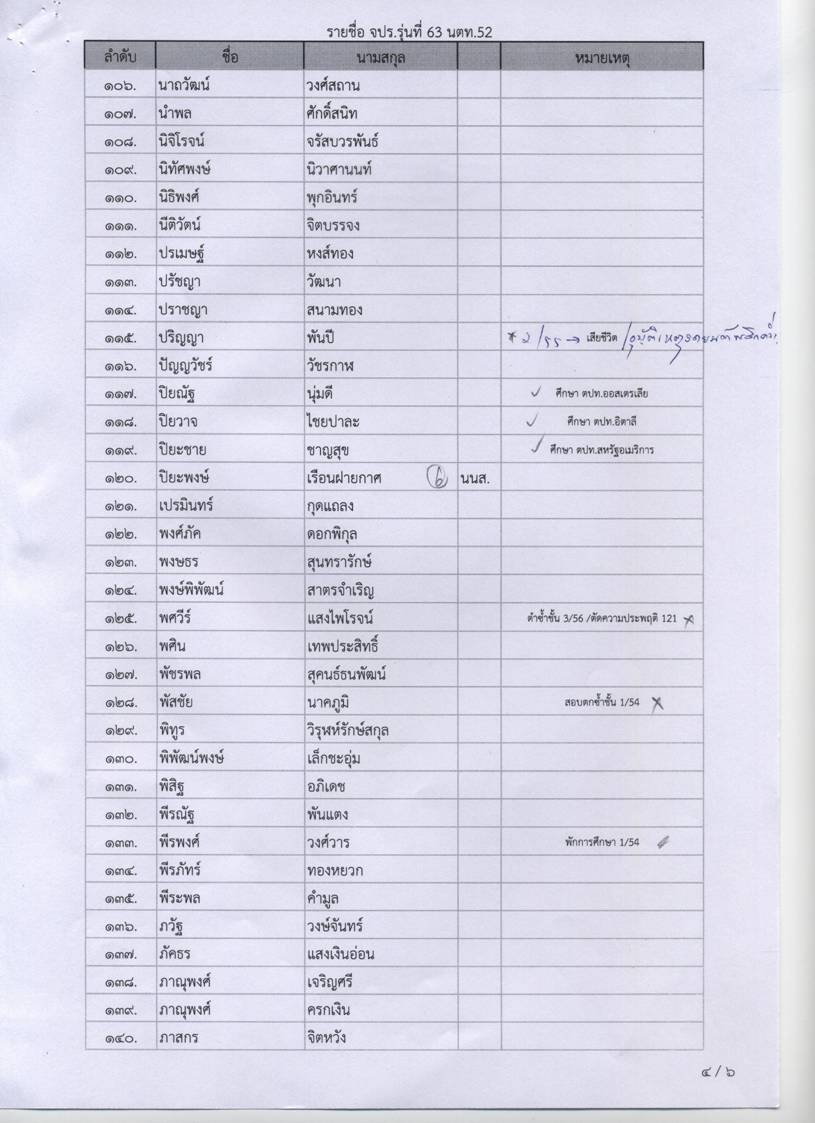 รายชื่อ จปร.รุ่นที่ 63 นตท.52
ลำดับ ชื่อ นามสกุล หมายเหตุ
๑๐๖. นาถวัฒน์ วงศ์สถาน
๑๐๗. นำพล ศักดิ์สนิท
๑๐๘. นิจิโรจน์ จรัสบวรพันธ์
๑๐๙. นิทัศพงษ์ นิวาศานนท์
๑๑๐. นิธิพงศ์ พุกอินทร์
๑๑๑. นีติวัตน์ จิตบรรจง
๑๑๒. ปรเมษฐ์ หงส์ทอง
๑๑๓. ปรัชญา วัฒนา
๑๑๔. ปราชญา สนามทอง
๑๑๕. ปริญญา พันปี 2/55 → เสียชีวิต / อุบัติเหตุ
๑๑๖. ปัญญวัชร์ วัชรกาฬ
๑๑๗. ปิยณัฐ นุ่มดี ✓ ศึกษา ตปท.ออสเตรเลีย
๑๑๘. ปิยวาจ ไชยปาละ ✓ ศึกษา ตปท.อิตาลี
๑๑๙. ปิยะชาย ชาญสุข ✓ ศึกษา ตปท.สหรัฐอเมริการ
๑๒๐. ปิยะพงษ์ เรือนฝายกาศ ๖ นนส.
๑๒๑. เปรมินทร์ กุดแถลง
๑๒๒. พงศ์ภัค ดอกพิกุล
๑๒๓. พงษธร สุนทรารักษ์
๑๒๔. พงษ์พิพัฒน์ สาตรจำเริญ
๑๒๕. พศวีร์ แสงไพโรจน์ ตำซ้ำชั้น 3/56 /ตัดความประพฤติ 121 ×
๑๒๖. พศิน เทพประสิทธิ์
๑๒๗. พัชรพล สุคนธ์ธนพัฒน์
๑๒๘. พัสชัย นาคภูมิ สอบตกซ้ำชั้น 1/54 ×
๑๒๙. พิทูร วิรุฬห์รักษ์สกุล
๑๓๐. พิพัฒน์พงษ์ เล็กชะอุ่ม
๑๓๑. พิสิฐ อภิเดช
๑๓๒. พีรณัฐ พันแตง
๑๓๓. พีรพงศ์ วงศ์วาร พักการศึกษา 1/54
๑๓๔. พีรภัทร์ ทองหยวก
๑๓๕. พีระพล คำมูล
๑๓๖. ภวัฐ วงษ์จันทร์
๑๓๗. ภัคธร แสงเงินอ่อน
๑๓๘. ภาณุพงศ์ เจริญศรี
๑๓๙. ภาณุพงศ์ ครกเงิน
๑๔๐. ภาสกร จิตหวัง
๔/๖